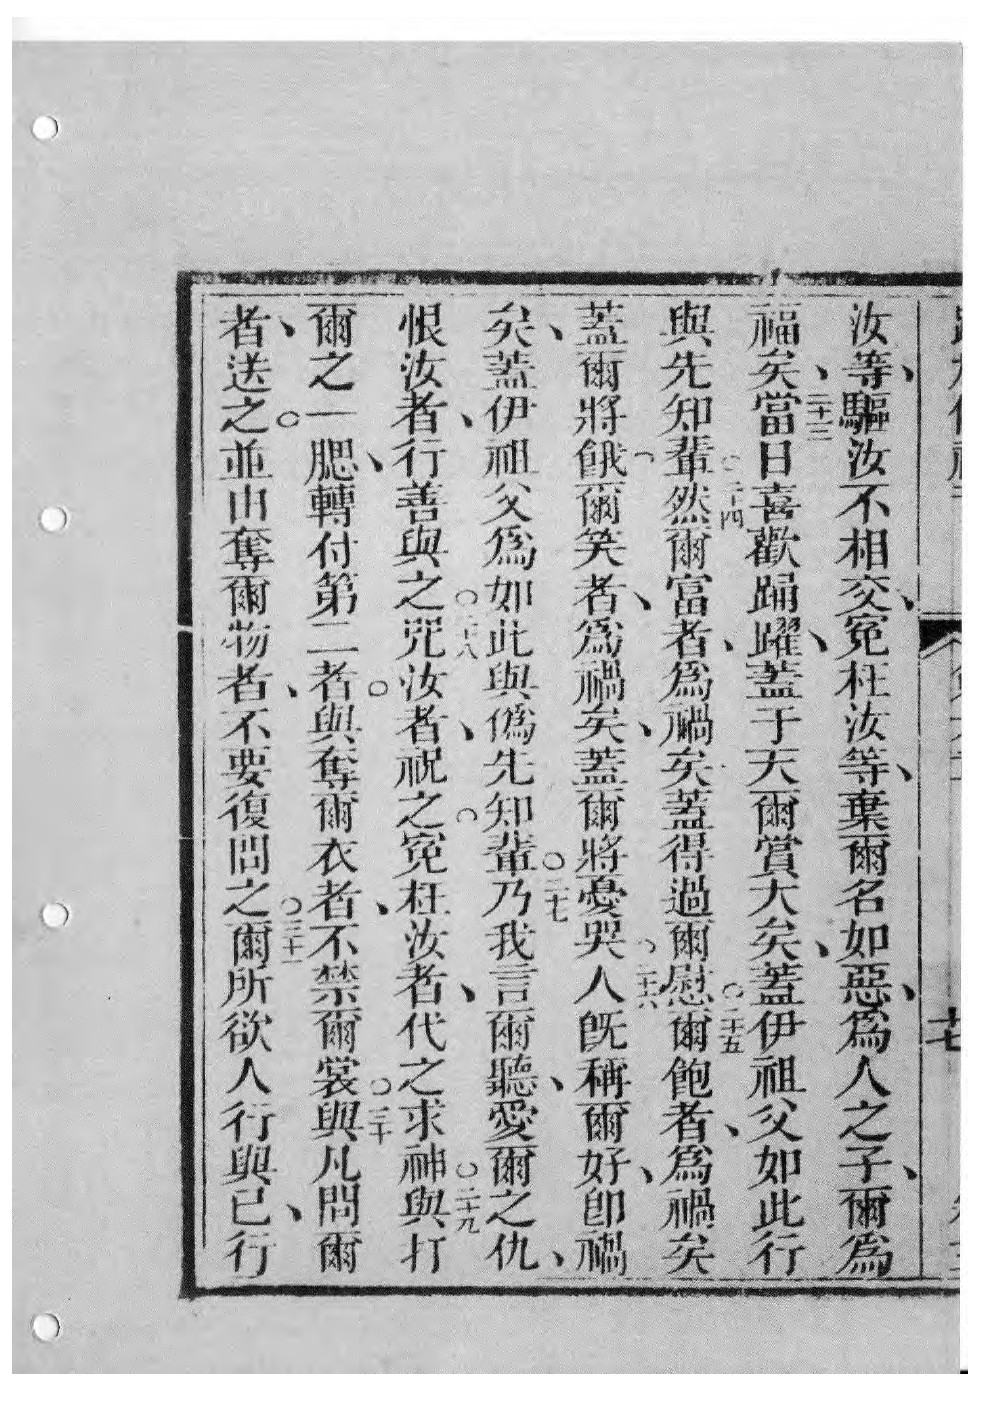 汝等、驅汝不相交、冤枉汝等、棄爾名如惡、爲人之子、爾爲
福矣、二十三當日喜歡踊躍、蓋于天爾賞大矣、蓋伊祖父如此行
與先知輩。二十四然爾富者、爲禍矣蓋得過爾慰。二十五爾飽者、爲禍矣
蓋爾將餓、爾笑者、爲禍矣、蓋爾將憂哭。二十六人旣稱爾好、卽禍
矣、蓋伊祖父爲如此與僞先知輩。二十七乃我言爾聽、愛爾之仇、
恨汝者、行善與之。二十八咒汝者、祝之。冤枉汝者、代之求神。二十九與打
爾之一腮、轉付第二者。與奪爾衣者、不禁爾裳。三十與凡問爾
者、送之。並由奪爾物者、不要復問之。三十一爾所欲人行與已、行